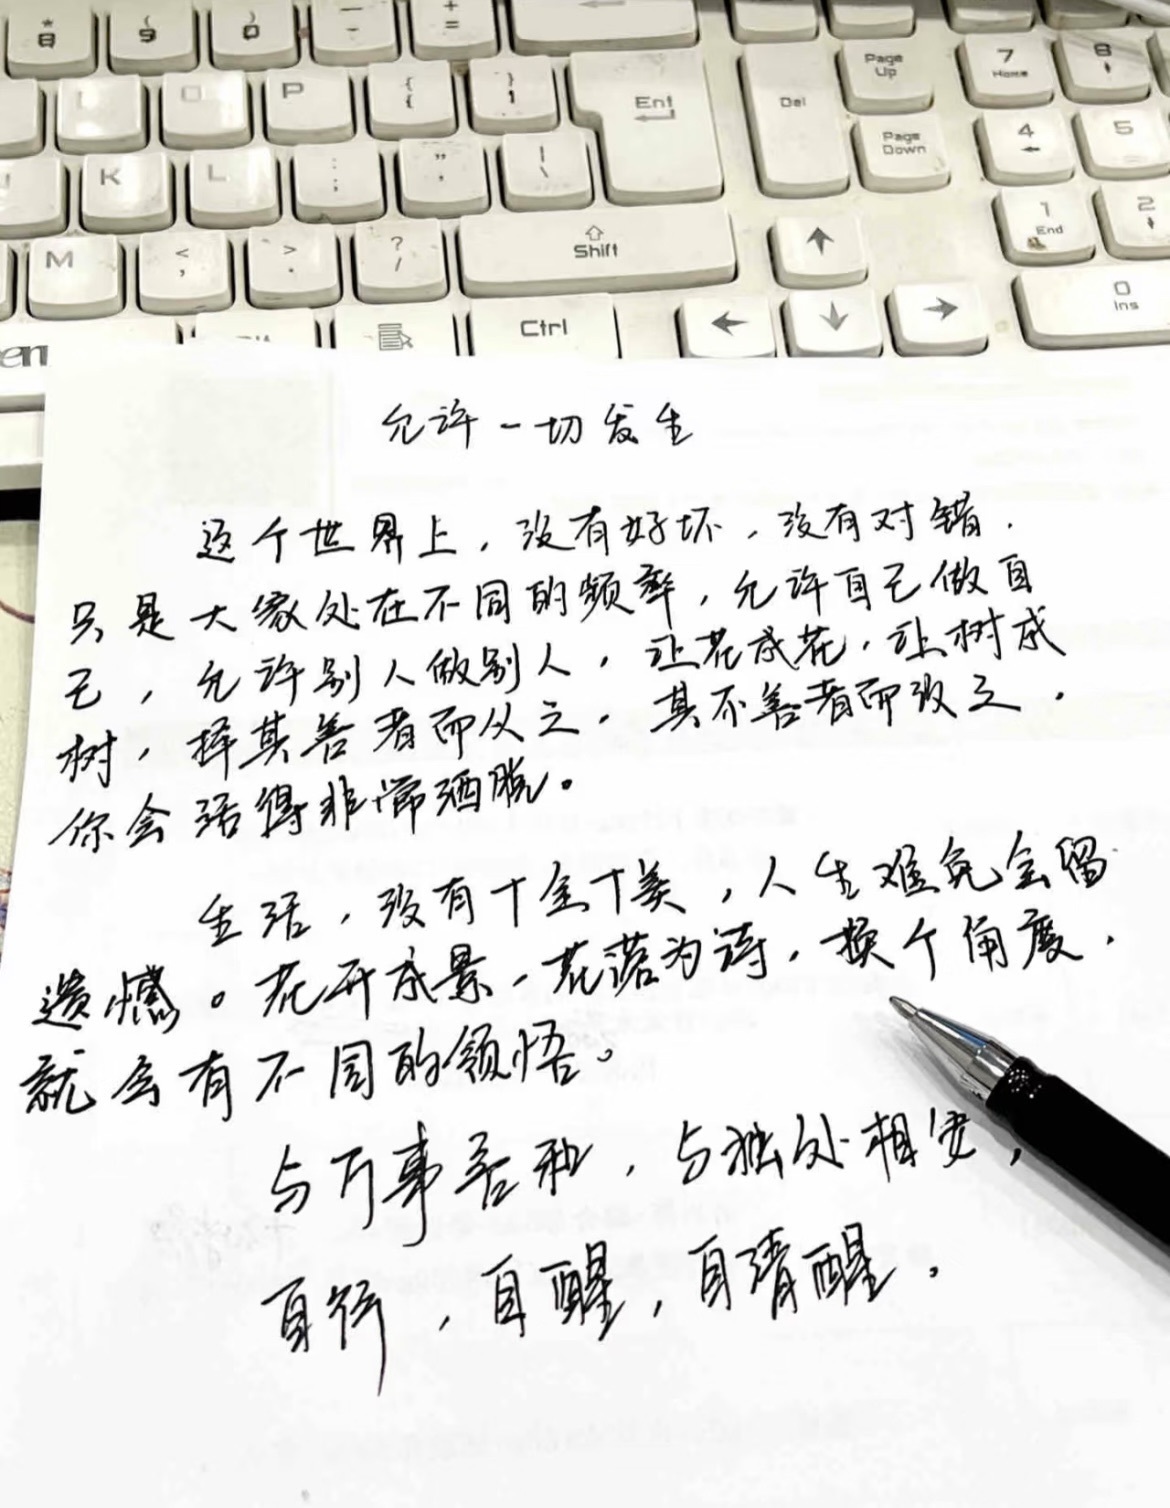 * 8
( 9
) 0
_ -
+ =
P
{ [
} ]
Ent
Del
Page Up
7 Home
8
K
L
: ;
" '
| \
Page Down
4
5
M
< ,
> .
? /
Shift
1 End
2
Ctrl
0 Ins
允许一切发生
这个世界上，没有好坏，没有对错.
只是大家处在不同的频率，允许自己做自
己，允许别人做别人，让花成花，让树成
树，择其善者而从之，其不善者而改之，
你会活得非常洒脱。
生活，没有十全十美，人生难免会留
遗憾。花开成景，花落为诗，换个角度，
就会有不同的领悟。
与万事言和，与独处相安，
自行，自醒，自清醒。